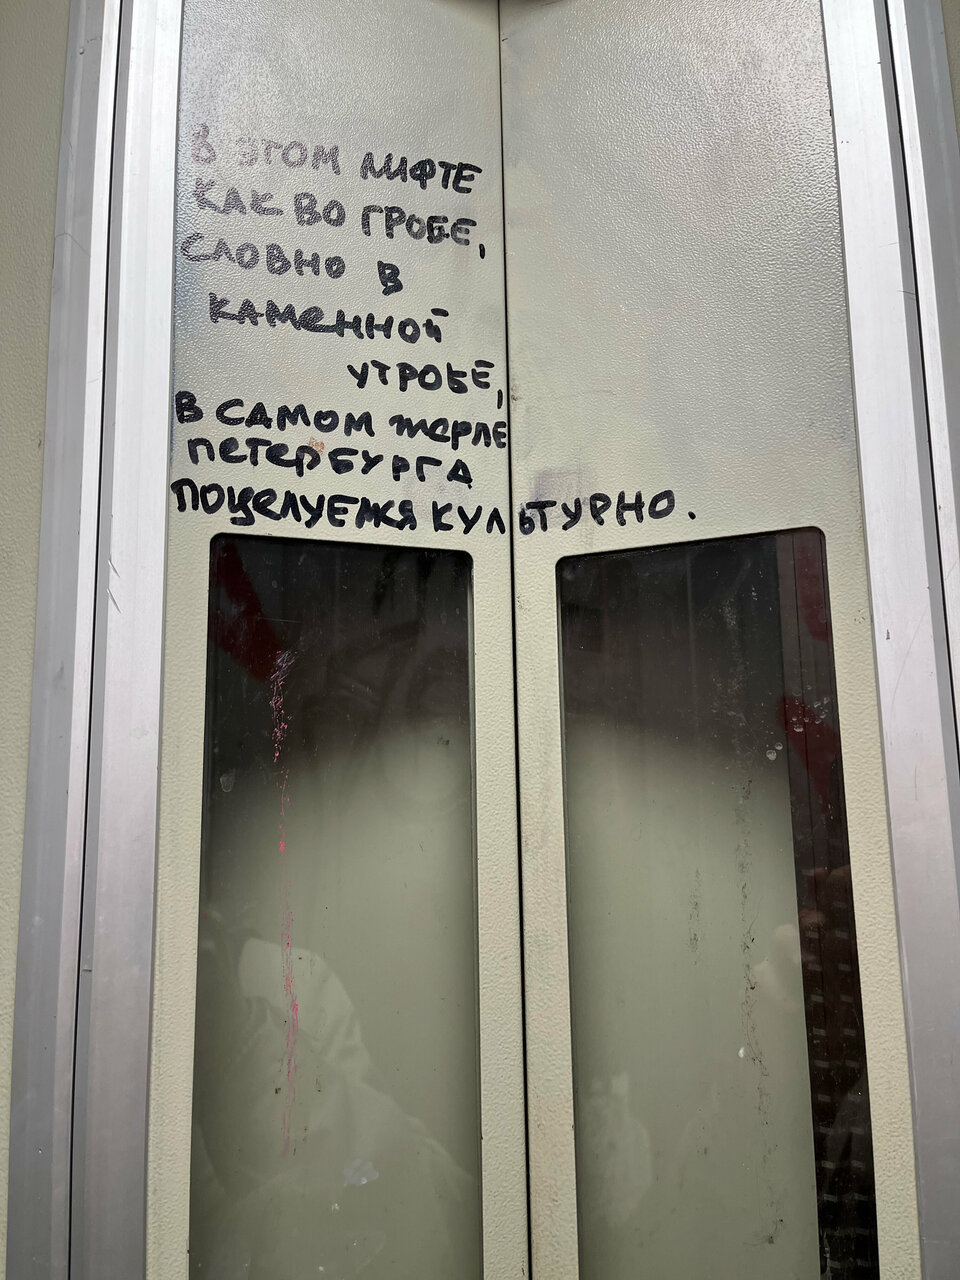 В ЭТОМ ЛИФТЕ
КАК ВО ГРОБЕ,
СЛОВНО В
КАМЕННОЙ
УТРОБЕ,
В САМОМ ЖЕРЛЕ
ПЕТЕРБУРГА
ПОЦЕЛУЕМСЯ КУЛЬТУРНО.